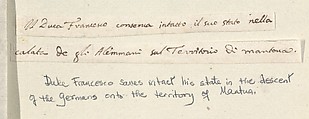 Il Duca Francesco conserva intacto il suo stato nella
calata de gli Alemmani sul Territorio di mantoua.
Duke Francesco saves intact his state in the descent
of the Germans onto the territory of Mantua.